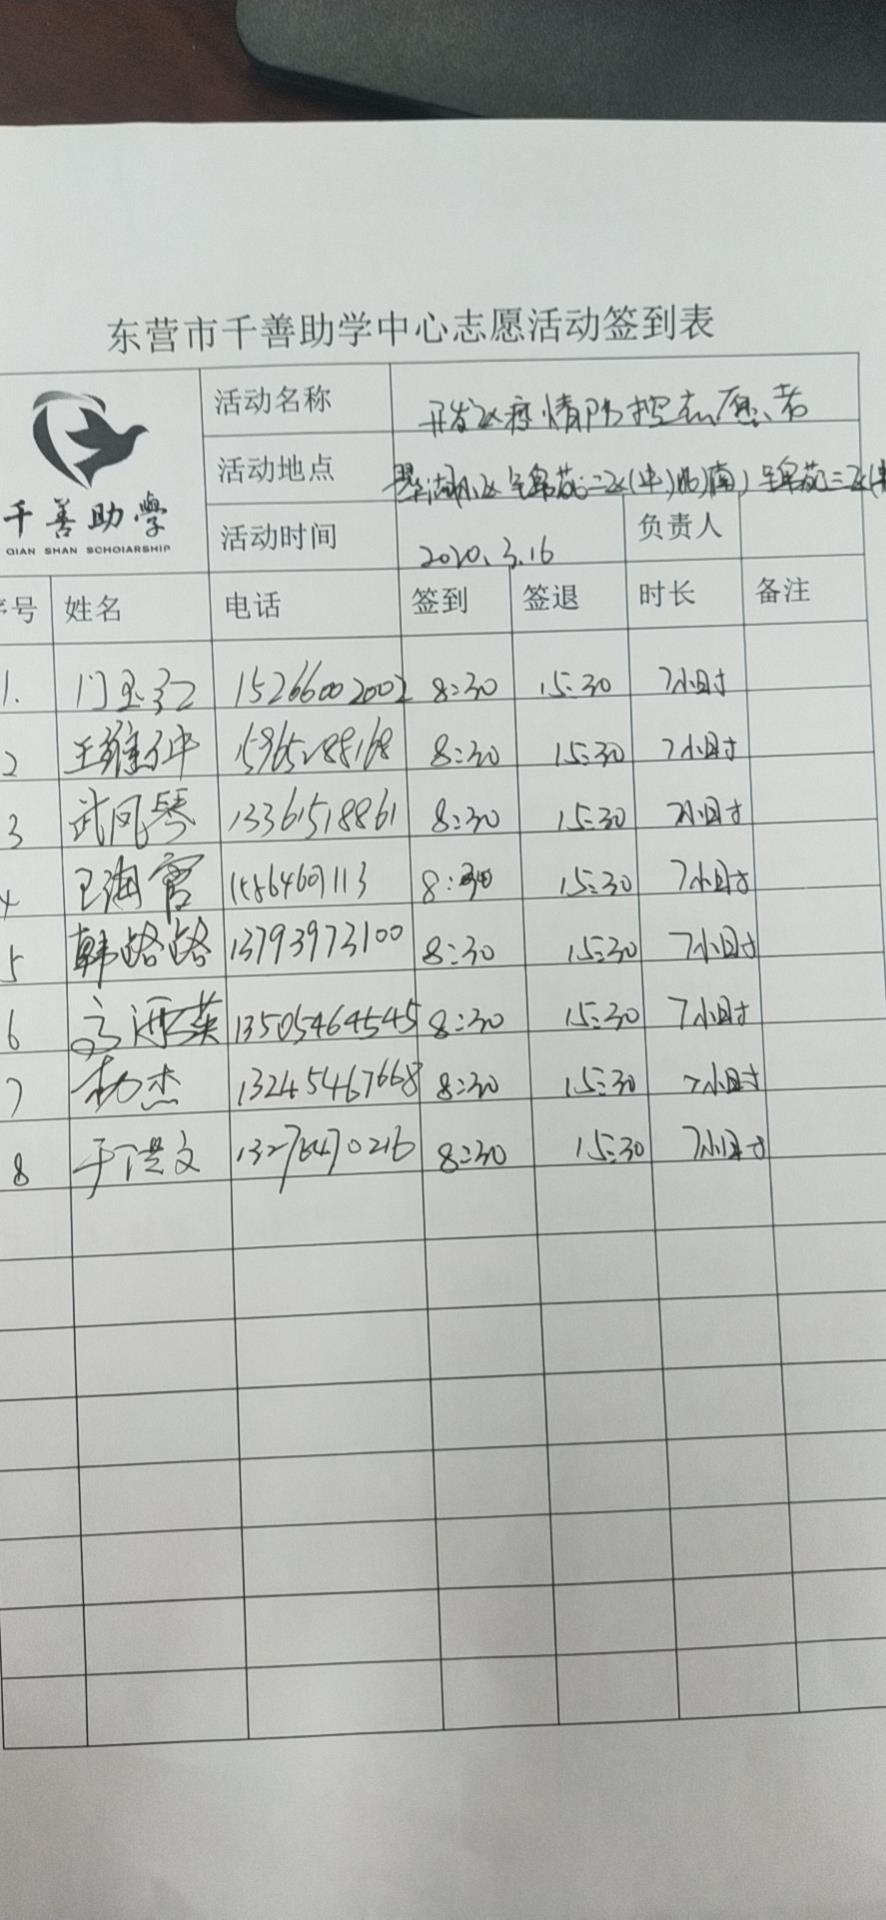 东营市千善助学中心志愿活动签到表
千善助學
QIAN SHAN SCHOIARSHIP
活动名称 开发区疫情防控志愿者
活动地点 翠湖小区 锦苑二区(中)(南) 锦苑三区
活动时间 2020.3.16 负责人
序号 姓名 电话 签到 签退 时长 备注
1. 门玉红 15266002002 8:30 15:30 7小时
2 王维仲 15965288168 8:30 15:30 7小时
3 武凤琴 13361518861 8:30 15:30 7小时
4 海 8:30 15:30 7小时
5 韩路路 13793973100 8:30 15:30 7小时
6 英 13505464545 8:30 15:30 7小时
7 杨杰 13245467668 8:30 15:30 7小时
8 于洪文 13276470216 8:30 15:30 7小时